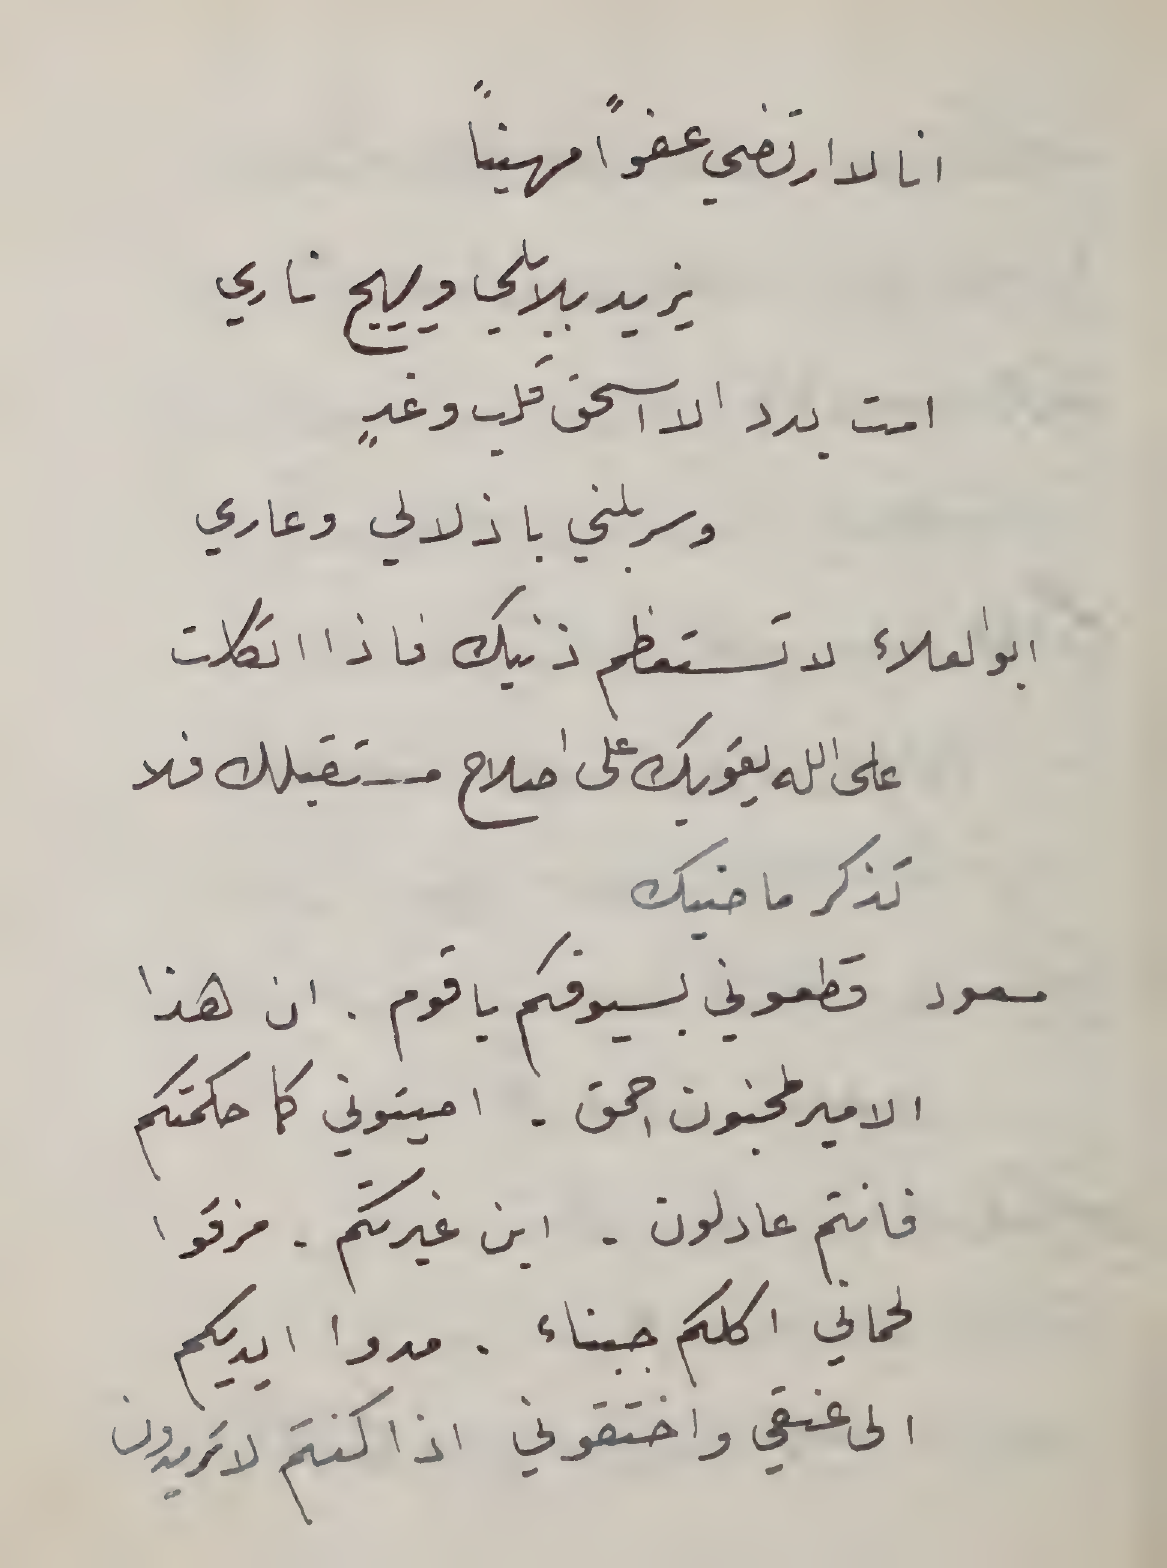 انا لا ارتضي عفواً مهيناً
يزيد بلابلي ويهيج ناري
امت بدد الا اسحق قلب وغدٍ
وسربلني باذلالي وعاري
ابو العلاء لا تستعظم ذنبك فاذا اتكلت
على الله يقويك على اصلاح مستقبلك فلا
تذكر ماضيك
مسعود قطعوني بسيوفكم يا قوم . ان هذا
الامير لمجنون احمق . اميتوني كما حكمتكم
فانتم عادلون . اين غيرتكم . مزقوا
لحماني اكلكم جبناء . مدوا ايديكم
الى عنقي واختقوني اذا كنتم لا تريدون